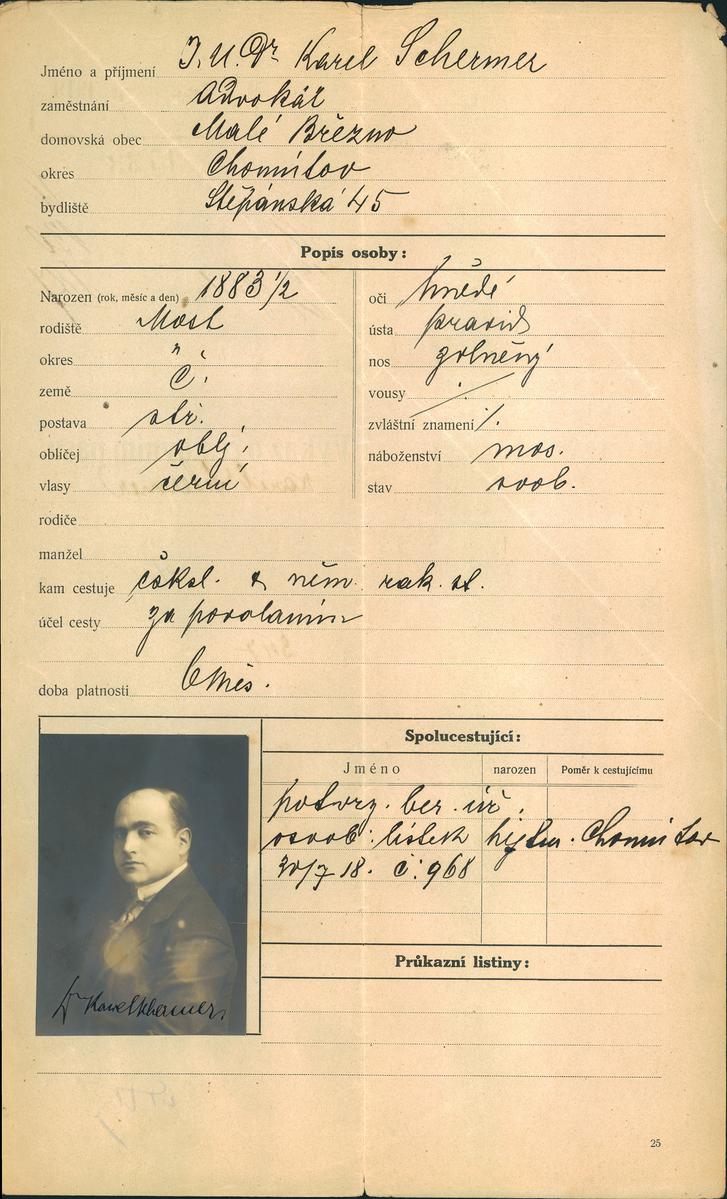 Jméno a příjmení J.U.Dr Karel Schermer
zaměstnání Advokát
domovská obec Malé Březno
okres Chomútov
bydliště Štěpánská 45
Popis osoby:
Narozen (rok, měsíc a den) 1883 1/2
rodiště Most
okres "
země Č.
postava stř.
obličej oblý
vlasy černé
oči hnědé
ústa pravid
nos
vousy ·/·
zvláštní znamení ·/·
náboženství mos.
stav svob.
rodiče
manžel
kam cestuje čsksl. & něm. rak. st.
účel cesty za povoláním
doba platnosti 6 měs.
Spolucestující:
Jméno narozen Poměr k cestujícímu
potvrz. ber. úř.
osob. lístek hejtm. Chomútov
20/7 18. č. 968
Průkazní listiny:
Dr Karel Schermer
25